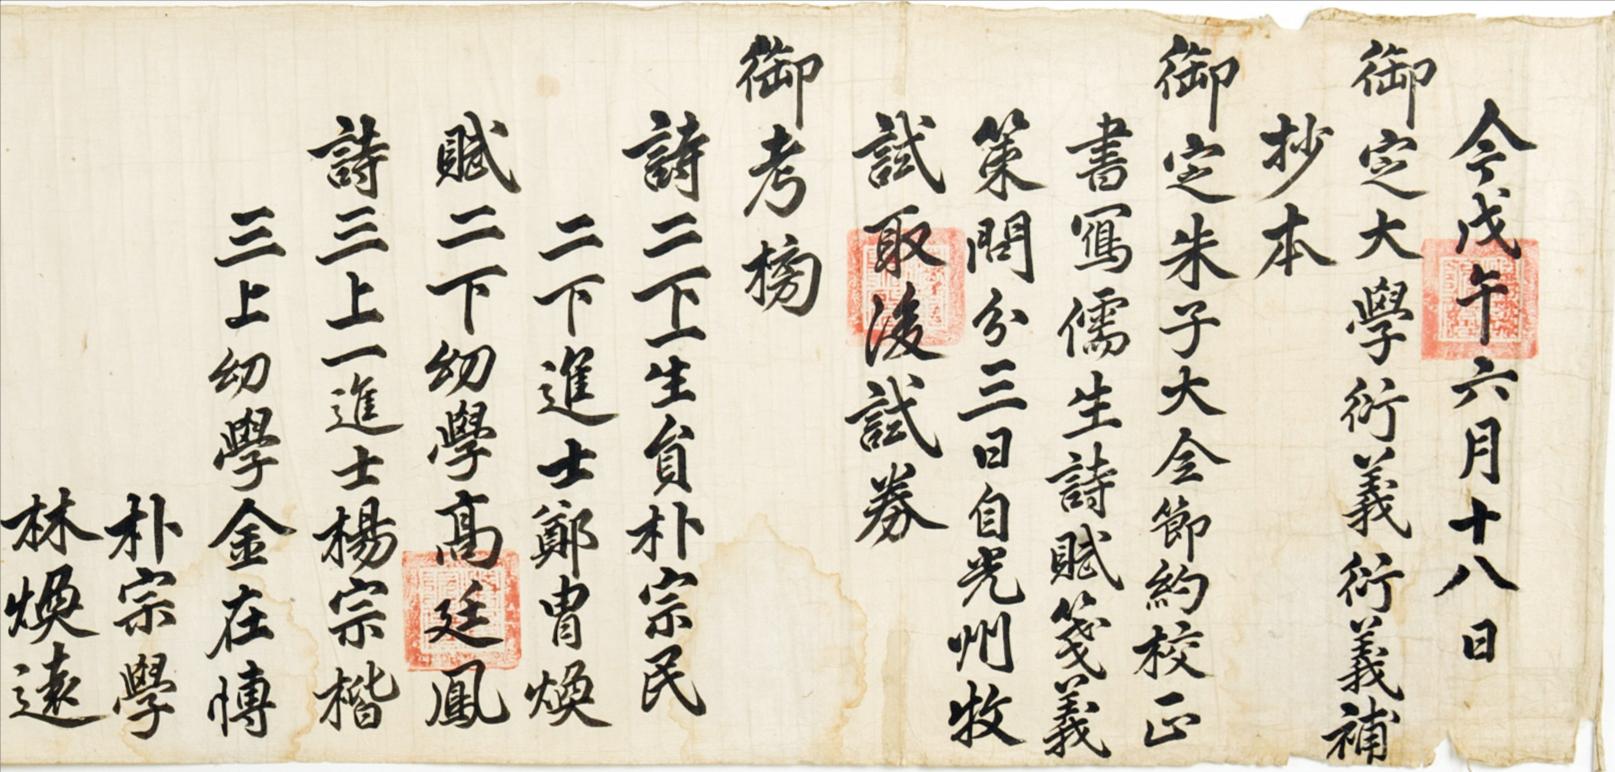 今戊午六月十八日
御定大學衍義衍義補
抄本
御定朱子大全節約校正
書寫儒生詩賦箋義
策問分三日自光州牧
試取後試券
御考榜
詩二下一生員朴宗民
二下進士鄭胄煥
賦二下幼學高廷鳳
詩三上一進士楊宗楷
三上幼學金在慱
朴宗學
林煥遠